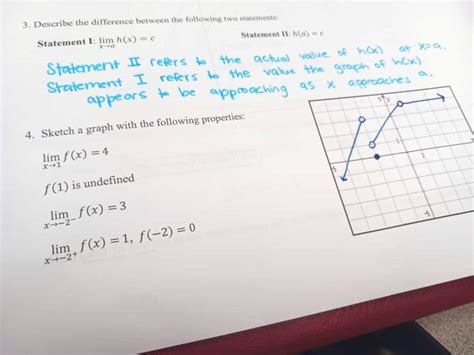 3. Describe the difference between the following two statements:
Statement I: lim x→a h(x) = c Statement II: h(a) = c
Statement II refers to the actual value of h(x) at x=a.
Statement I refers to the value the graph of h(x)
appears to be approaching as x approaches a.
4. Sketch a graph with the following properties:
lim x→1 f(x) = 4
f(1) is undefined
lim x→-2⁻ f(x) = 3
lim x→-2⁺ f(x) = 1, f(-2) = 0